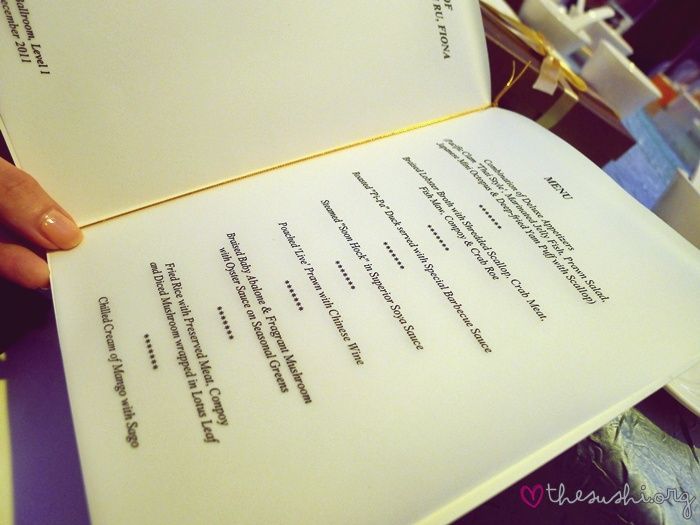 Ballroom, Level 1
December 2011
OF
RU, FIONA
MENU
Combination of Deluxe Appetizers
(Pacific Clam "Thai Style', Marinated Jelly Fish, Prawn Salad,
Japanese Mini Octopus & Deep-fried Yam Puff with Scallop)
*******
Braised Lobster Broth with Shredded Scallop, Crab Meat,
Fish Maw, Conpoy & Crab Roe
*******
Roasted "Pi-Pa" Duck served with Special Barbecue Sauce
*******
Steamed "Soon Hock" in Superior Soya Sauce
*******
Poached 'Live' Prawn with Chinese Wine
*******
Braised Baby Abalone & Fragrant Mushroom
with Oyster Sauce on Seasonal Greens
*******
Fried Rice with Preserved Meat, Conpoy
and Diced Mushroom wrapped in Lotus Leaf
*******
Chilled Cream of Mango with Sago
thesushi.org